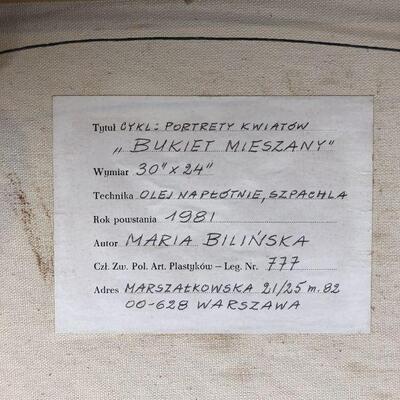 Tytuł CYKL: PORTRETY KWIATÓW
„BUKIET MIESZANY"
Wymiar 30" x 24"
Technika OLEJ NA PŁÓTNIE, SZPACHLA
Rok powstania 1981
Autor MARIA BILIŃSKA
Czł. Zw. Pol. Art. Plastyków – Leg. Nr. 777
Adres MARSZAŁKOWSKA 21/25 m. 82
00-628 WARSZAWA